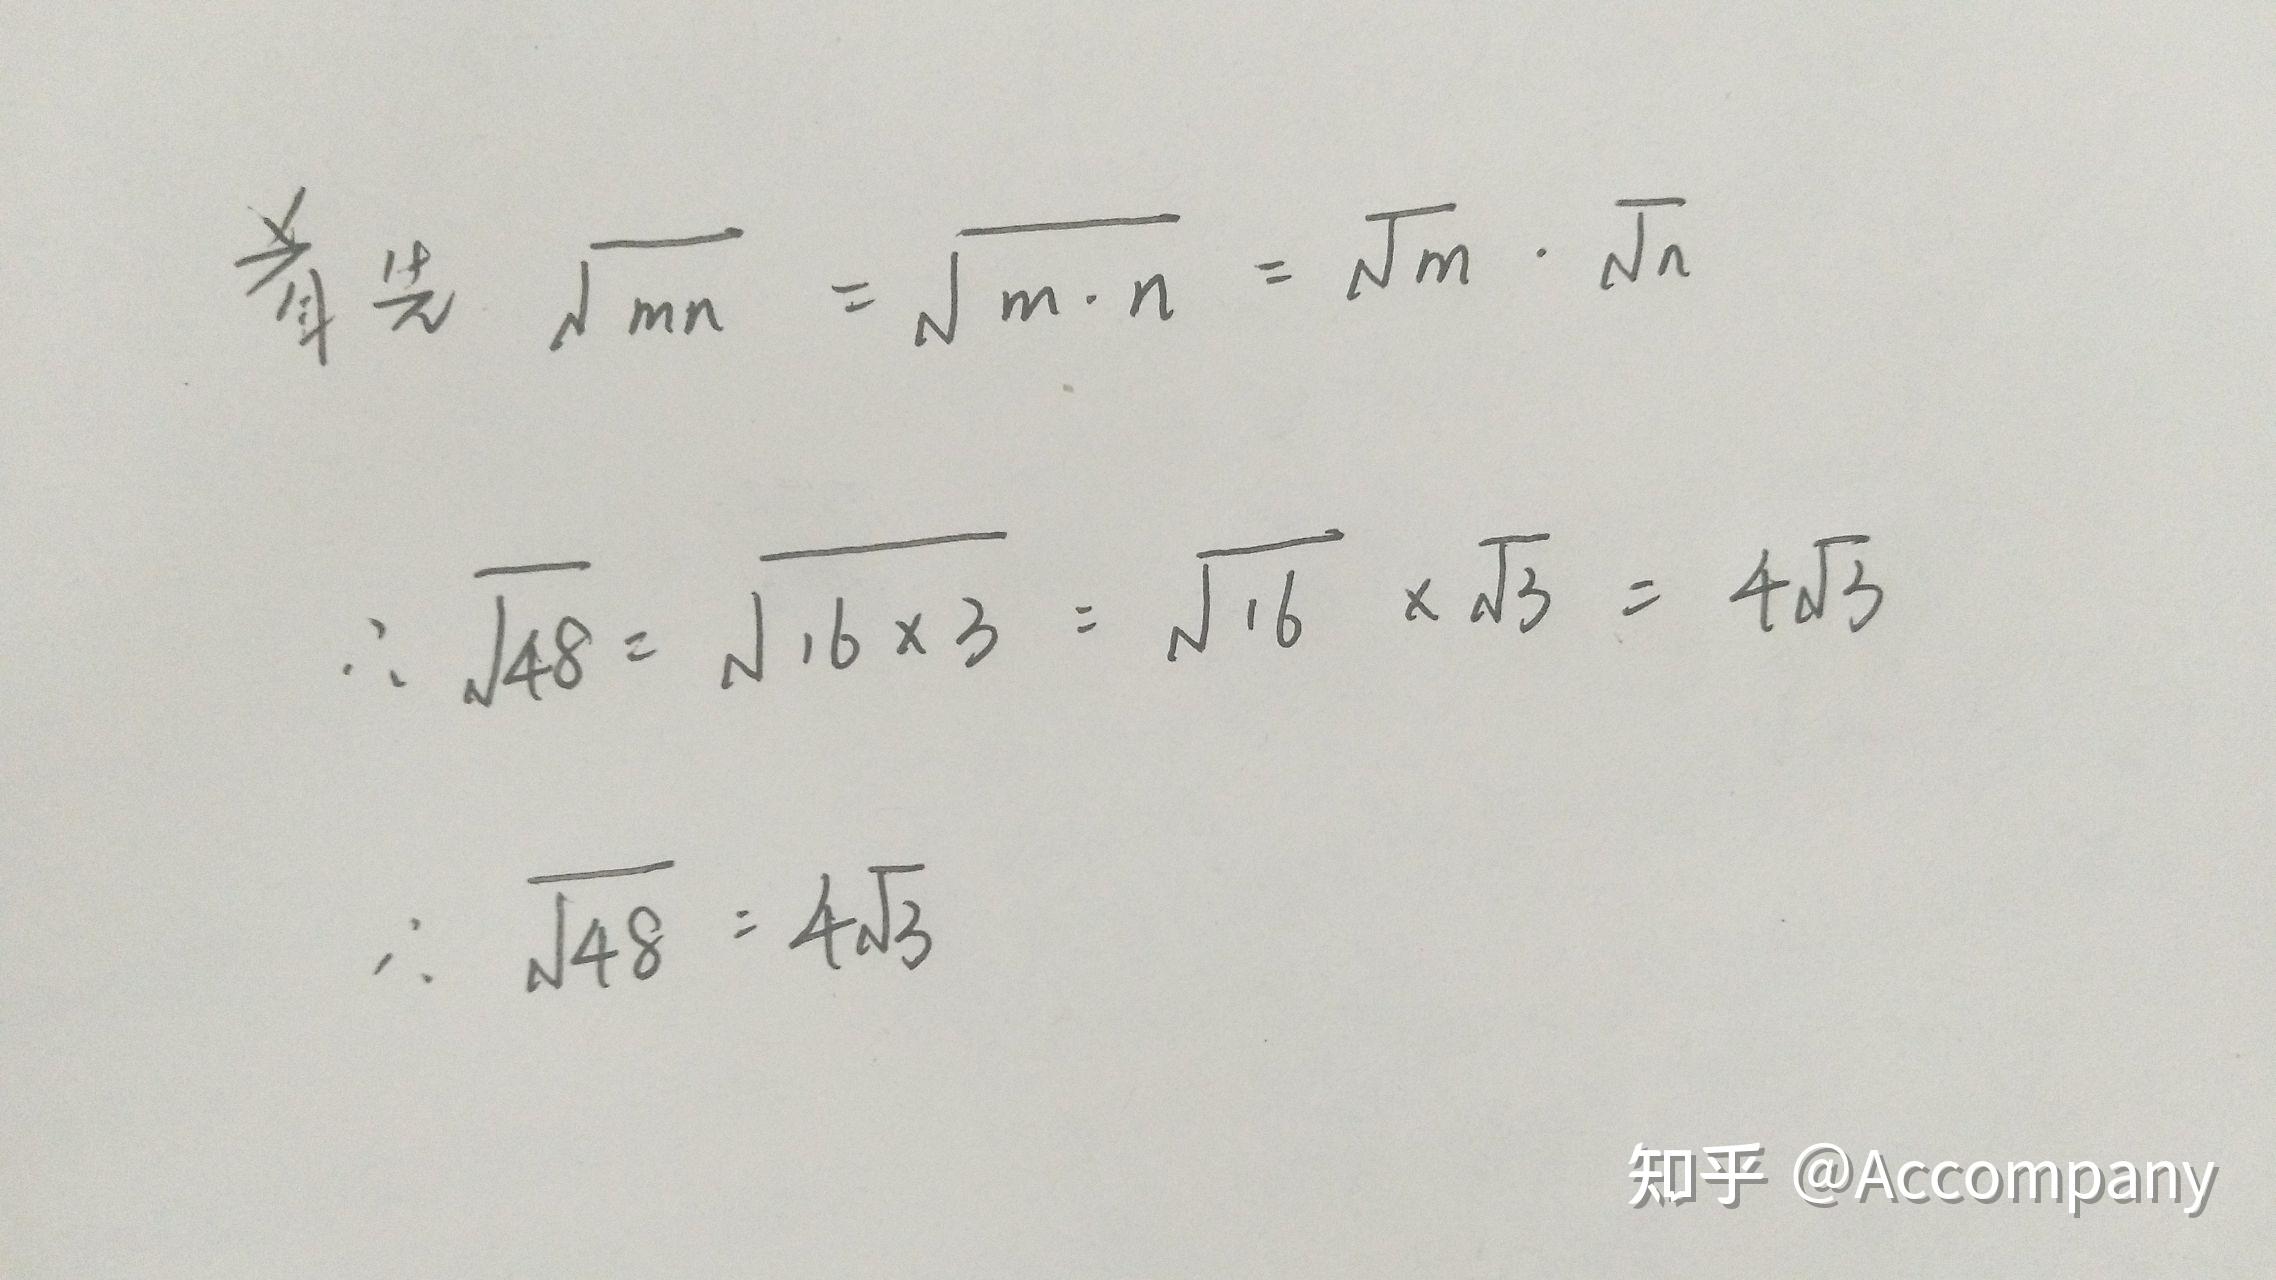 首先 √mn = √m·n = √m · √n
∴ √48 = √16×3 = √16 × √3 = 4√3
∴ √48 = 4√3
知乎 @Accompany